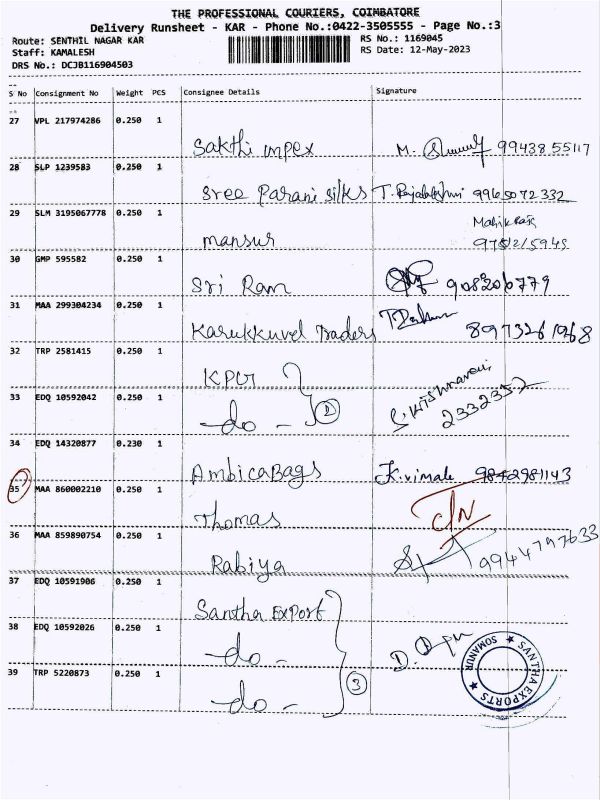 THE PROFESSIONAL COURIERS, COIMBATORE
Delivery Runsheet - KAR - Phone No.:0422-3505555 - Page No.:3
Route: SENTHIL NAGAR KAR RS No.: 1169045
Staff: KAMALESH RS Date: 12-May-2023
DRS No.: DCJB116904503
S No Consignment No Weight PCS Consignee Details Signature
27 VPL 217974286 0.250 1
Sakthi impex M. 99438 55117
28 SLP 1239583 0.250 1
Sree Parani Silks T. Rajalakshmi 9965072332
29 SLM 3195067778 0.250 1
mansur
30 GMP 595582 0.250 1
Sri Ram
31 MAA 299304234 0.250 1
Karukkuvel Traders 8973261968
32 TRP 2581415 0.250 1
KPG
33 EDQ 10592042 0.250 1
do - 2 2332352
34 EDQ 14320877 0.230 1
Ambica Bags K. vimala 9842981143
35 MAA 860002210 0.250 1
Thomas
36 MAA 859890754 0.250 1
Rabiya 9944797633
37 EDQ 10591906 0.250 1
Santha Export
38 EDQ 10592026 0.250 1
-do- D.
39 TRP 5220873 0.250 1
-do- 3
SANTHA EXPORTS
SOMANUR